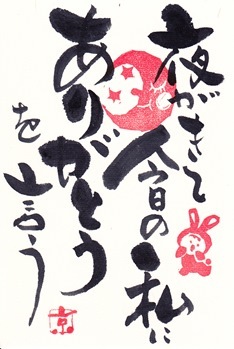 夜がきて
今日の私に
ありがとう
を言う
京